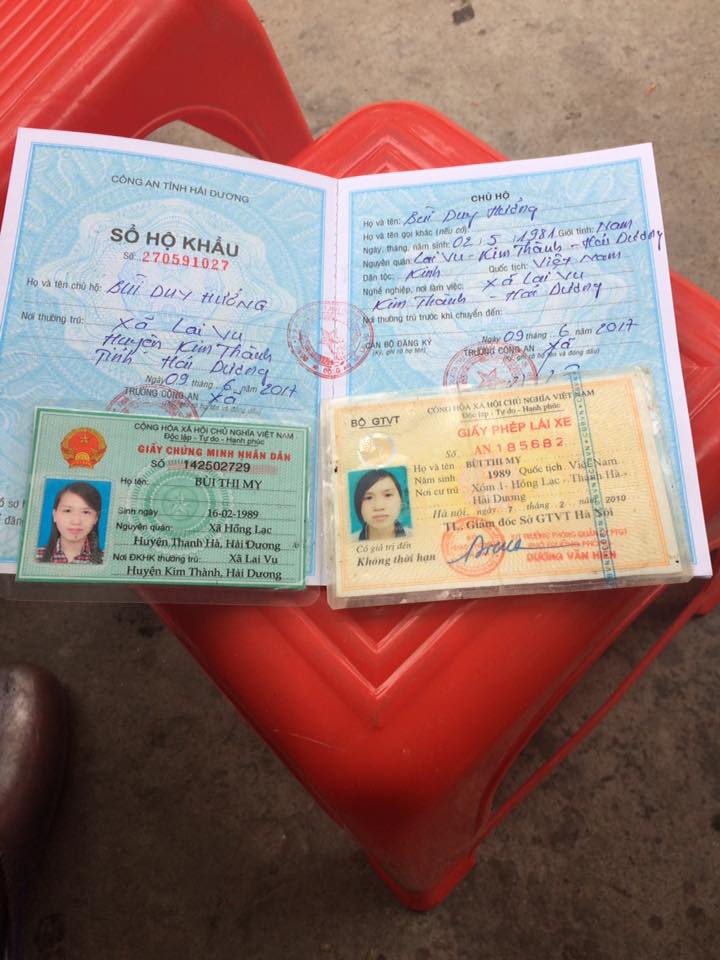 CÔNG AN TỈNH HẢI DƯƠNG
SỔ HỘ KHẨU
Số: 270591027
Họ và tên chủ hộ: BÙI DUY HƯỞNG
Nơi thường trú: Xã Lai Vu
Huyện Kim Thành
Tỉnh Hải Dương
Ngày 09 tháng 6 năm 2017
TRƯỞNG CÔNG AN Xã
CHỦ HỘ
Họ và tên: Bùi Duy Hưởng
Họ và tên gọi khác (nếu có):
Ngày, tháng, năm sinh: 02.5.1981 Giới tính: Nam
Nguyên quán: Lai Vu - Kim Thành - Hải Dương
Dân tộc: Kinh Quốc tịch: Việt Nam
Nghề nghiệp, nơi làm việc: xã Lai Vu
Kim Thành - Hải Dương
Nơi thường trú trước khi chuyển đến:
09 tháng 6 năm 2017
CÁN BỘ ĐĂNG KÝ
(Ký, ghi rõ họ tên)
TRƯỞNG CÔNG AN xã
CỘNG HÒA XÃ HỘI CHỦ NGHĨA VIỆT NAM
Độc lập - Tự do - Hạnh phúc
GIẤY CHỨNG MINH NHÂN DÂN
SỐ 142502729
Họ tên: BÙI THỊ MY
Sinh ngày 16-02-1989
Nguyên quán: Xã Hồng Lạc
Huyện Thanh Hà, Hải Dương
Nơi ĐKHK thường trú: Xã Lai Vu
Huyện Kim Thành, Hải Dương
BỘ GTVT
CỘNG HÒA XÃ HỘI CHỦ NGHĨA VIỆT NAM
Độc lập - Tự do - Hạnh phúc
GIẤY PHÉP LÁI XE
Số AN 185682
Họ và tên BÙI THỊ MY
Năm sinh 1989 Quốc tịch: Việt Nam
Nơi cư trú Xóm 1- Hồng Lạc - Thanh Hà -
Hải Dương
Hà nội, ngày 7 tháng 2 năm 2010
TL. Giám đốc Sở GTVT Hà Nội
Có giá trị đến
Không thời hạn
DƯƠNG VĂN HIỂN